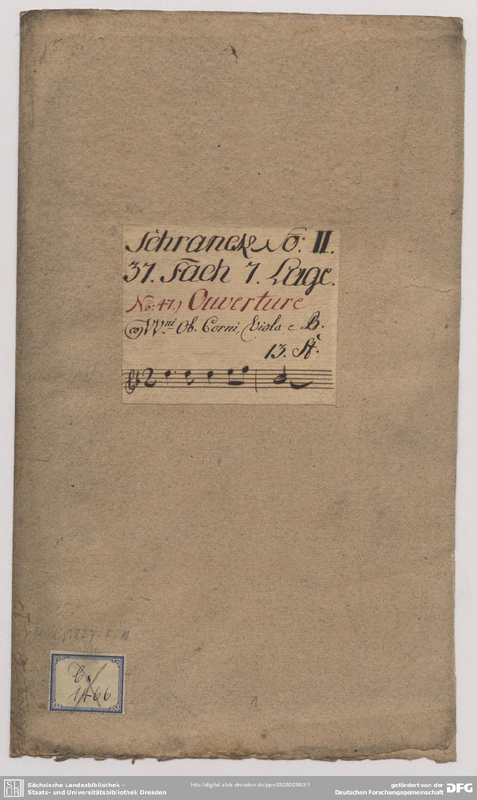 Schranck No: II.
37. Fach 7. Lage.
No: 47.) Ouverture
VVni Ob. Corni, Viola e B.
13. St.
Cx
1466
1
Sächsische Landesbibliothek –
Staats- und Universitätsbibliothek Dresden
http://digital.slub-dresden.de/
gefördert von der
Deutschen Forschungsgemeinschaft
DFG